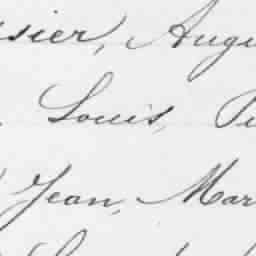 sier, Augu
Louis, Pi
Jean, Mar